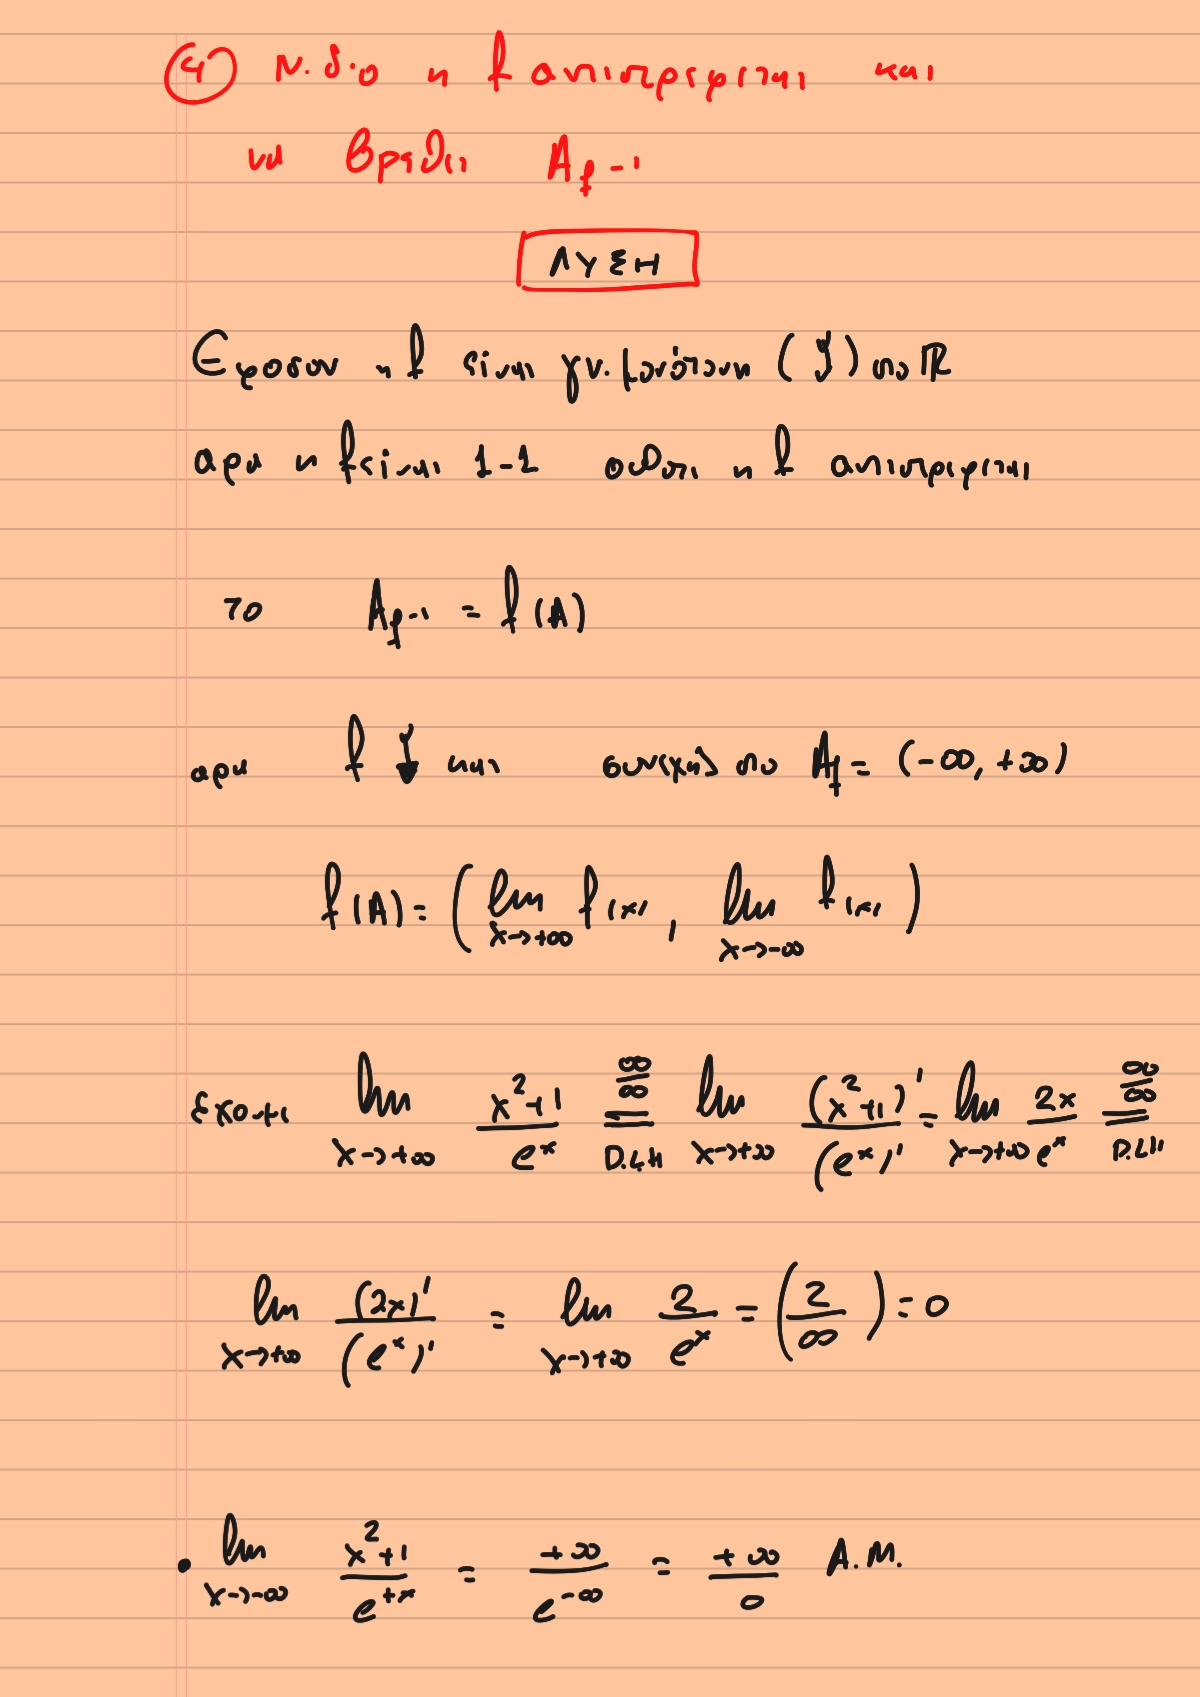 ④ Ν.δ.ο η f αντιστρεφεται και
να βρεθει A_{f^{-1}}
ΛΥΣΗ
Εφοσον η f είναι γν. μονότονη (↓) στο ℝ
αρα η f είναι 1-1 οπότε η f αντιστρεφεται
το A_{f^{-1}} = f(A)
αρα f ↓ και συνεχής στο A_f = (-∞, +∞)
f(A) = ( lim_{x→+∞} f(x) , lim_{x→-∞} f(x) )
Εχουμε lim_{x→+∞} \frac{x^2+1}{e^x} \overset{∞/∞}{\underset{D.L.H}{=}} lim_{x→+∞} \frac{(x^2+1)'}{(e^x)'} = lim_{x→+∞} \frac{2x}{e^x} \overset{∞/∞}{\underset{D.L.H}{=}}
lim_{x→+∞} \frac{(2x)'}{(e^x)'} = lim_{x→+∞} \frac{2}{e^x} = (\frac{2}{∞}) = 0
• lim_{x→-∞} \frac{x^2+1}{e^{+x}} = \frac{+∞}{e^{-∞}} = \frac{+∞}{0} Α.Μ.